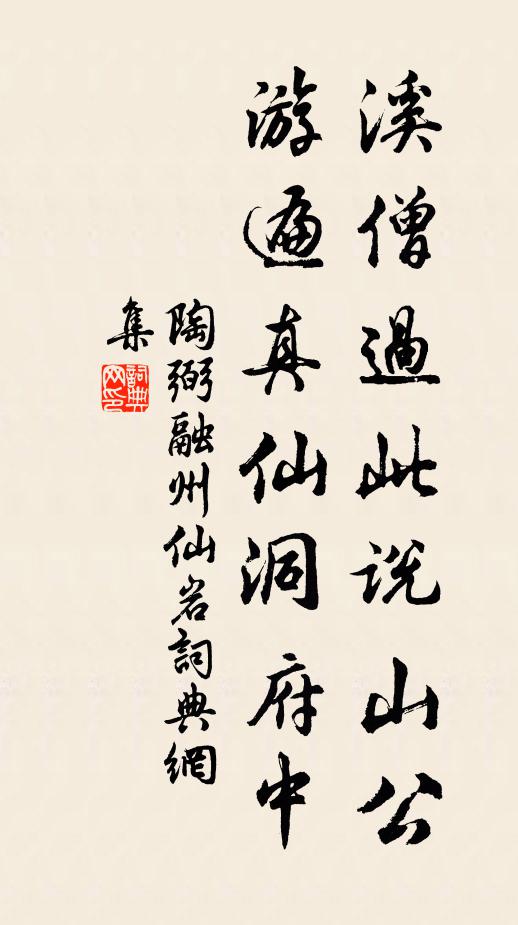 溪僧過此説山公
游遍真仙洞府中
陶弼融州仙岩詞典網
集
詞典
网印